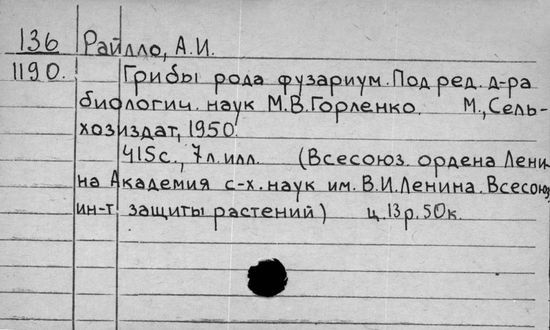 136 Райлло, А.И.
1190. Грибы рода фузариум. Под ред. д-ра
биологич. наук М.В. Горленко. М., Сель-
хозиздат, 1950.
415с., 7л. илл. (Всесоюз. ордена Лени-
на Академия с-х. наук им. В.И. Ленина. Всесоюз.
ин-т защиты растений) ц. 13р. 50к.